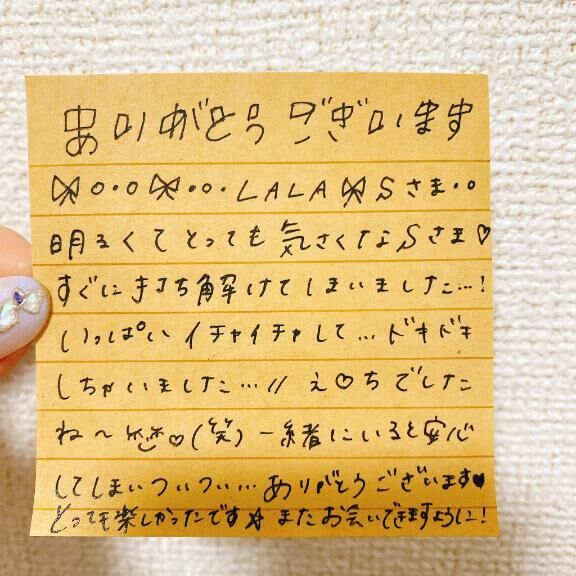 ありがとうございます
🎀○・○🎀○・・LALA🎀Sさま・○
明るくてとっても気さくなSさま♡
すぐに打ち解けてしまいました…!
いっぱいイチャイチャして…ドキドキ
しちゃいました…// え♡ちでした
ね〜♡(笑)一緒にいると安心
してしまいついつい…ありがとうございます♥
とっても楽しかったです☆またお会いできますように!